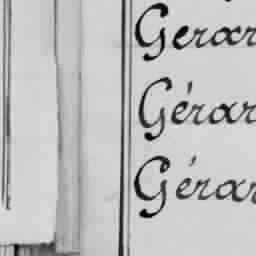 Gerar
Gérar
Gérar